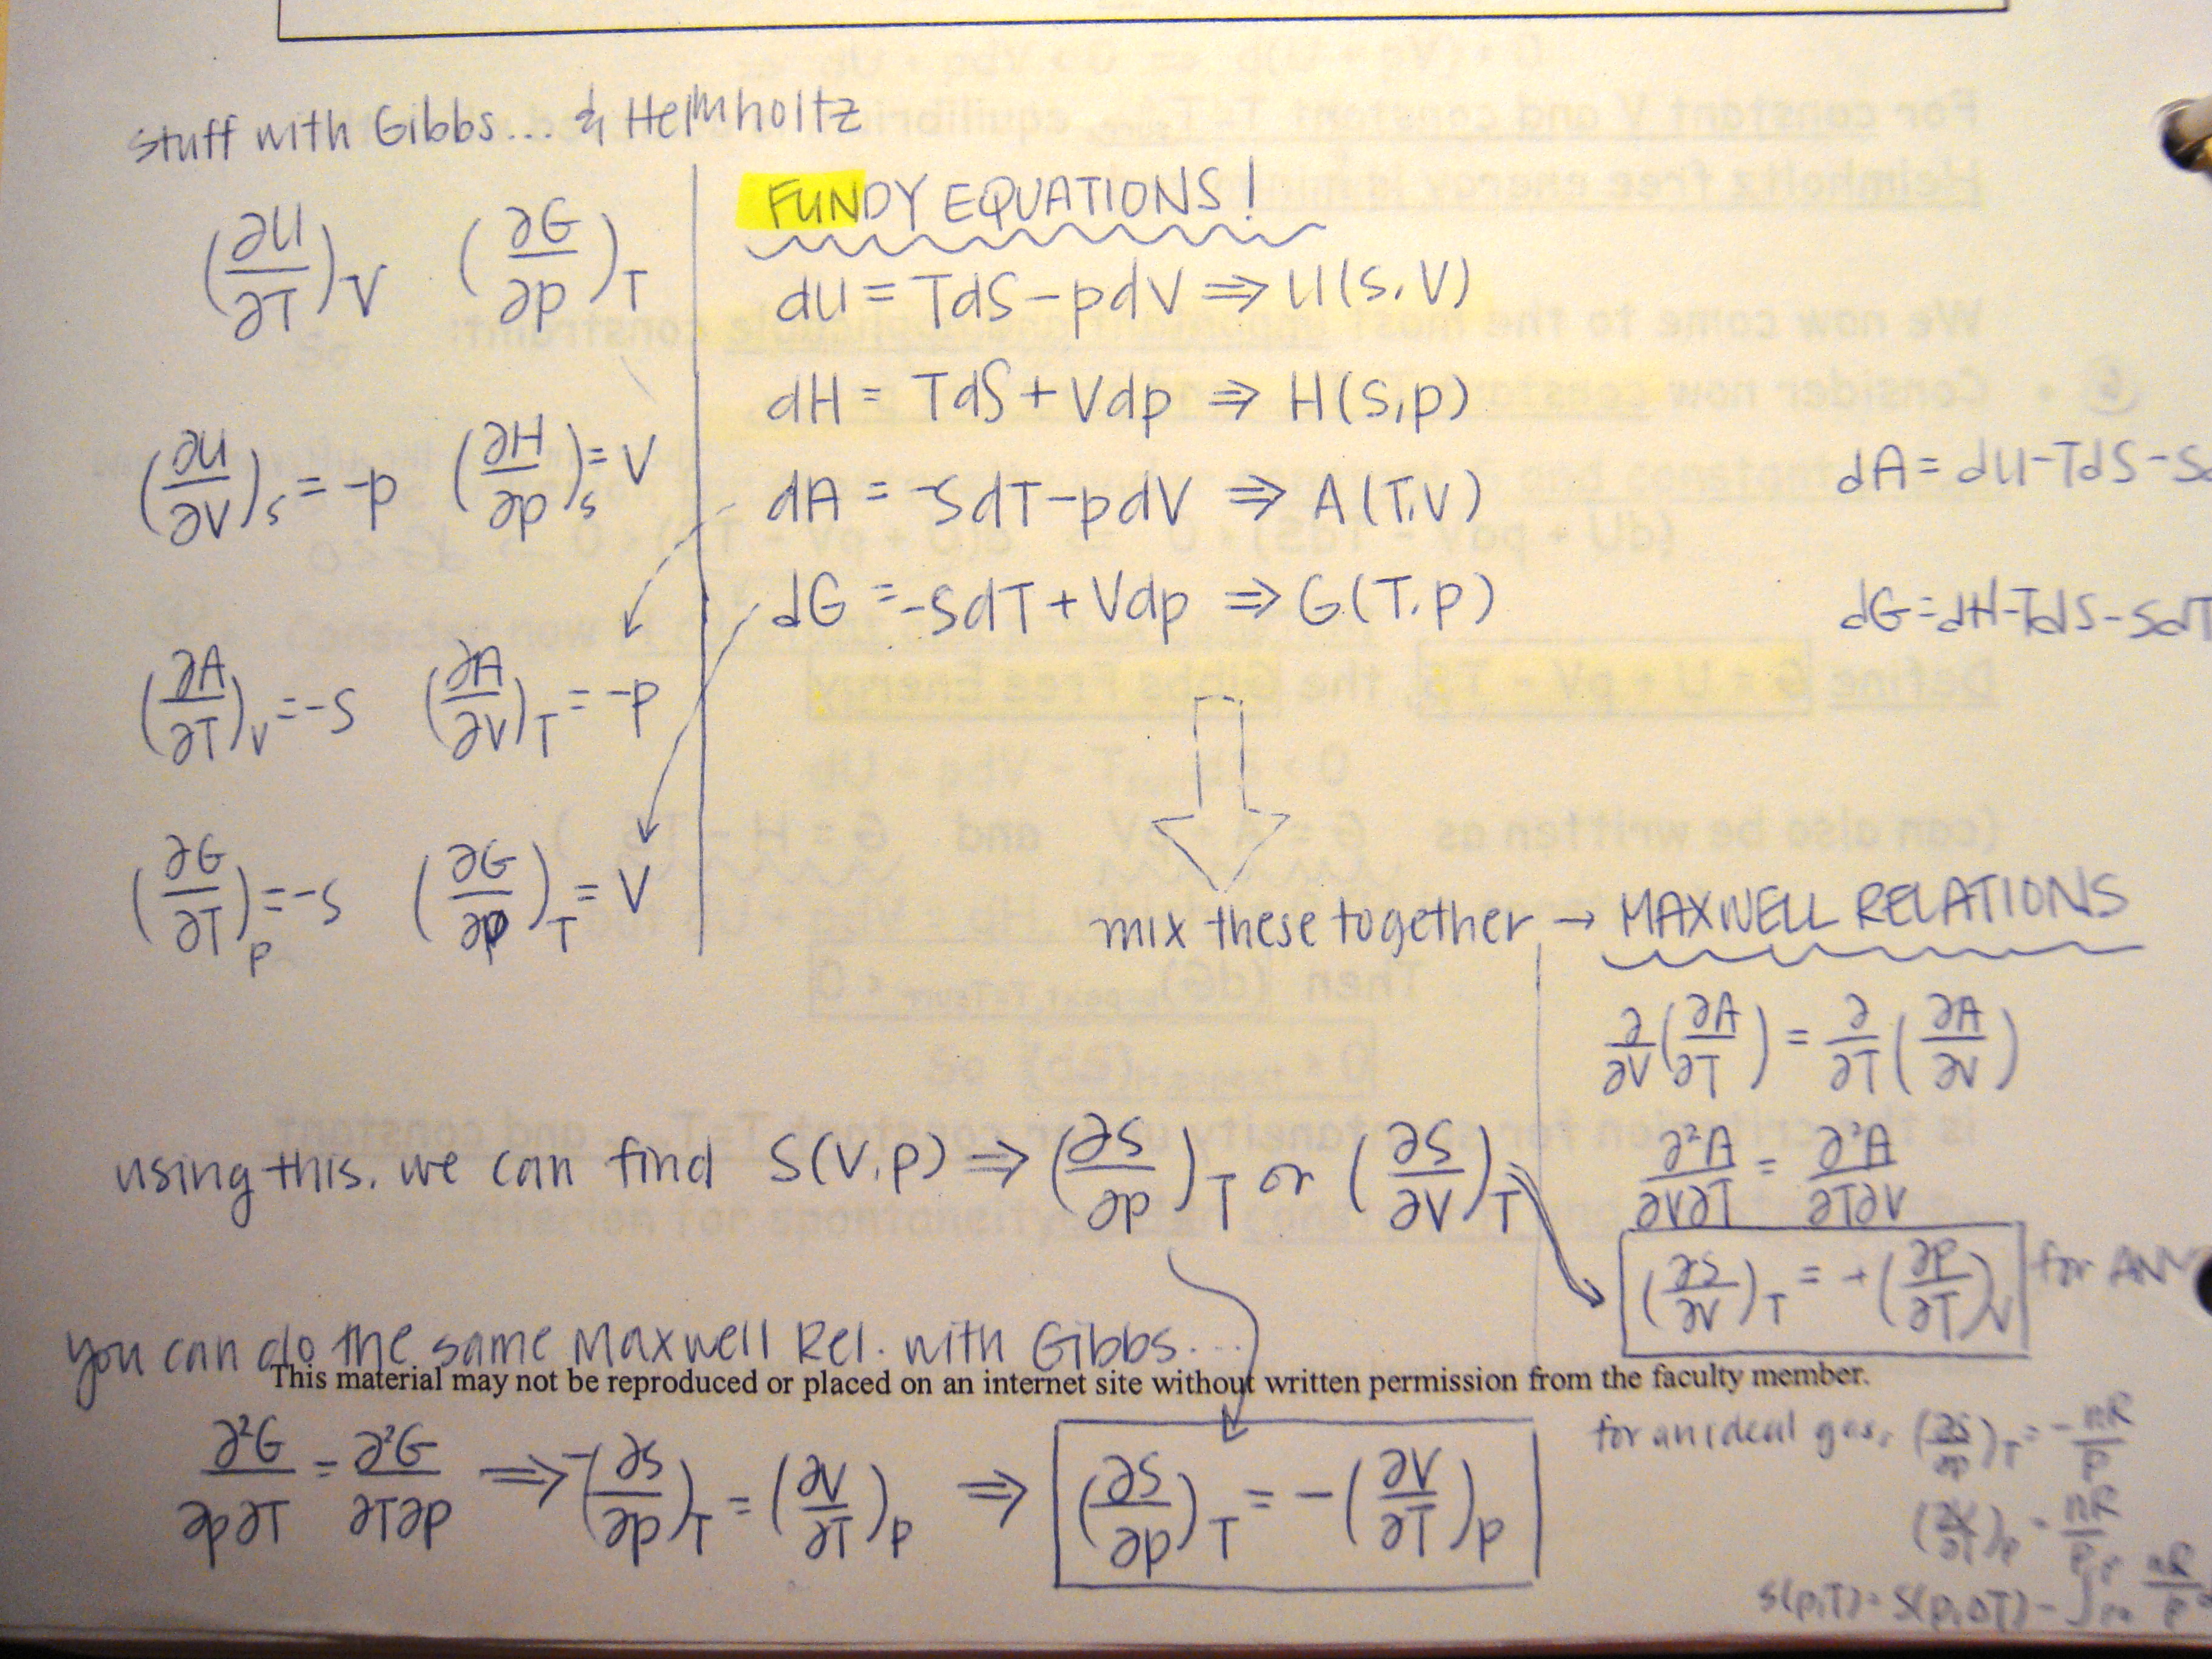 stuff with Gibbs... & Helmholtz
(∂U/∂T)_V (∂G/∂p)_T
(∂U/∂V)_S = -p (∂H/∂p)_S = V
(∂A/∂T)_V = -S (∂A/∂V)_T = -p
(∂G/∂T)_p = -S (∂G/∂p)_T = V
FUNDY EQUATIONS!
dU = TdS - pdV ⇒ U(S,V)
dH = TdS + Vdp ⇒ H(S,p)
dA = -SdT - pdV ⇒ A(T,V)
dG = -SdT + Vdp ⇒ G(T,p)
dA = dU - TdS - Sd
dG = dH - TdS - SdT
mix these together → MAXWELL RELATIONS
∂/∂V (∂A/∂T) = ∂/∂T (∂A/∂V)
∂²A/∂V∂T = ∂²A/∂T∂V
(∂S/∂V)_T = +(∂P/∂T)_V for ANY
using this, we can find S(V,p) ⇒ (∂S/∂p)_T or (∂S/∂V)_T
you can do the same Maxwell Rel. with Gibbs...
This material may not be reproduced or placed on an internet site without written permission from the faculty member.
∂²G/∂p∂T = ∂²G/∂T∂p ⇒ -(∂S/∂p)_T = (∂V/∂T)_p ⇒ (∂S/∂p)_T = -(∂V/∂T)_p
for an ideal gas, (∂S/∂p)_T = -nR/P
(∂V/∂T)_P = nR/P